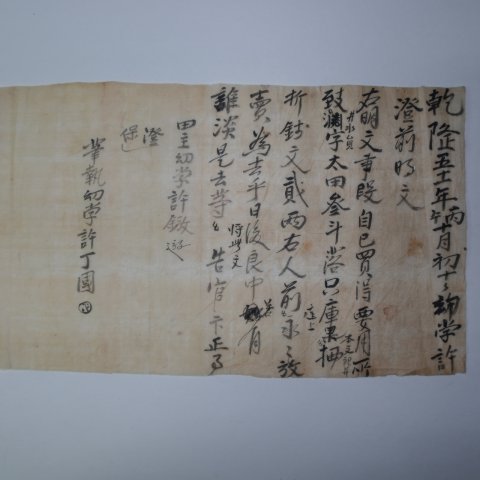 乾隆五十一年丙午十月初十日幼學許
澄前明文
右明文事段自己買得要用所
致瀾字太田參斗落只庫果
折錢文貳兩右人前永永放
賣為去乎日後良中 有
雜談是去等 將此文 告官卞正事
田主幼學許
澄
保
筆執幼學許丁國